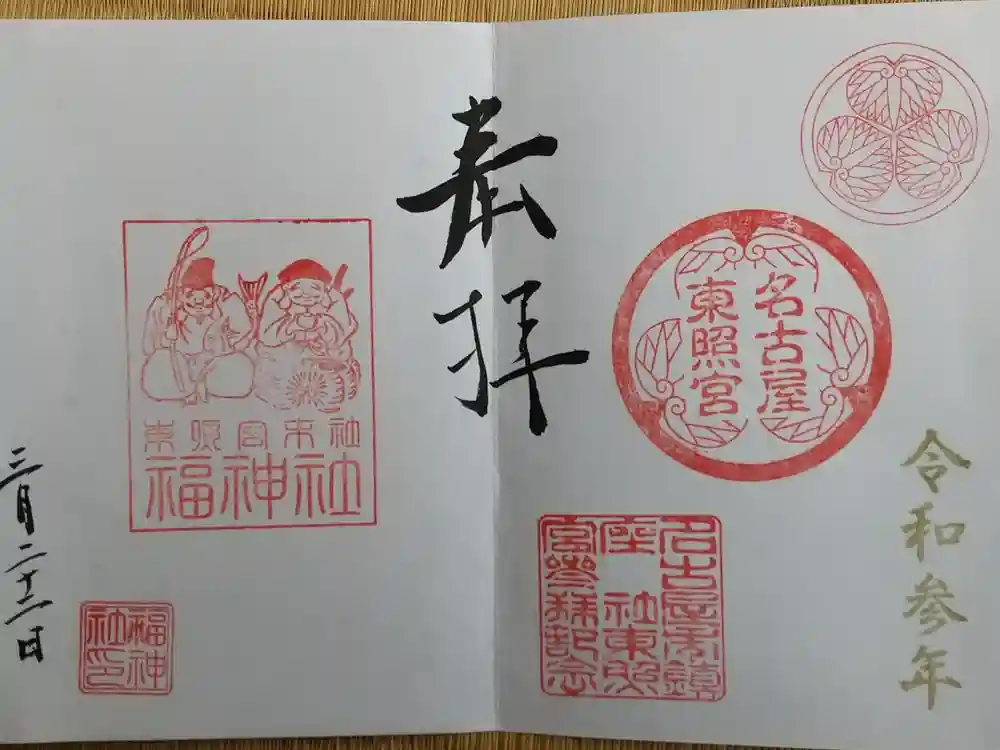 令和参年
名古屋
東照宮
名古屋市鎮
座 社東照
宮参拝記念
奉拝
東照宮末社
福神社
福神
社印
三月二十二日